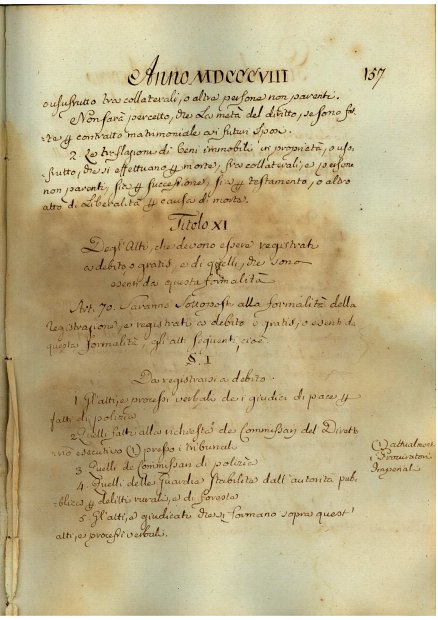 Anno MDCCCVIII 157
o usufrutto tra collaterali, o altre persone non parenti.
Non sarà percetto, che la metà del diritto, se sono fat-
te p contratto matrimoniale ai futuri Sposi.
2. Le traslazioni di beni immobili in proprietà, o usu-
frutto, che si effettuano p morte, fra collaterali, e persone
non parenti, sia p successione, sia p testamento, o altro
atto di liberalità p causa di morte.
Titolo XI
Degl'Atti, che devono essere registrati
a debito o gratis, e di quelli, che sono
esenti da questa formalità
Art. 70. Saranno sottoposti alla formalità della
registrazione, e registrati a debito o gratis, o esenti da
questa formalità, gli atti seguenti, cioè
§. I
Da registrarsi a debito.
1 Gl'atti, e processi verbali dei giudici di pace p
fatti di polizia
2 Quelli fatti alla richiesta de Commissari del Diret-
torio esecutivo (1) presso i tribunali
(1) attualmente
i Procuratori
Imperiali
3 Quelli de commissari di polizia
4. Quelli delle Guardie stabilite dall'autorità pub-
blica p delitti rurali, e di foreste
5. Gl'atti, e giudicati che si formano sopra quest'
atti, e processi verbali.